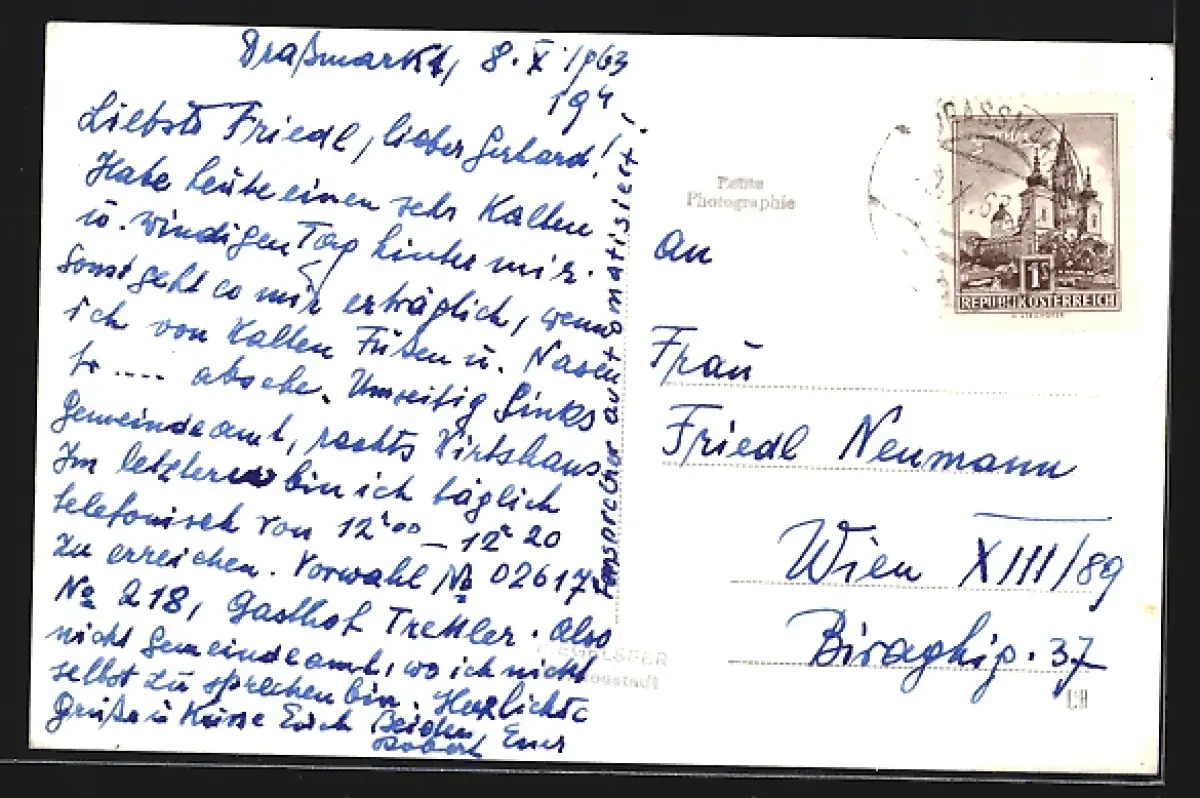 Draßmarkt, 8. X. 1963
19h
Liebste Friedl, lieber Gerhard!
Habe heute einen sehr kalten
u. windigen Tag hinter mir.
Sonst geht es mir erträglich, wenn
ich von kalten Füßen u. Nasen
absehe. Umseitig links
Gemeindeamt, rechts Wirtshaus
Im letzteren bin ich täglich
telefonisch von 12h00 – 12h20
zu erreichen. Vorwahl No 02617
No 218, Gasthof Trettler. Also
nicht Gemeindeamt, wo ich nicht
selbst zu sprechen bin. Herzlichste
Grüße u Küsse Euch Beiden Euer
Robert
Fernsprecher automatisiert!
Echte
Photographie
An
Frau
Friedl Neumann
Wien XIII/89
Biraghig. 37
DRASSMA
X. 63
1S
REPUBLIK ÖSTERREICH